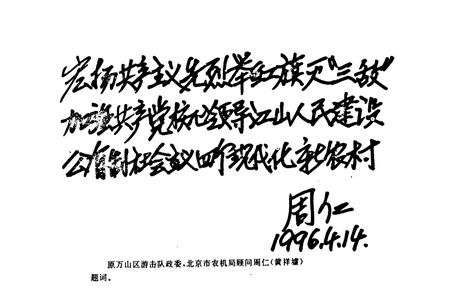 宏扬共产主义先烈举红旗灭“三敌”
加强共产党核心领导江山人民建设
公有制社会主义四个现代化新农村
周仁
1996.4.14.
原万山区游击队政委、北京市农机局顾问周仁(黄祥墟)
题词。